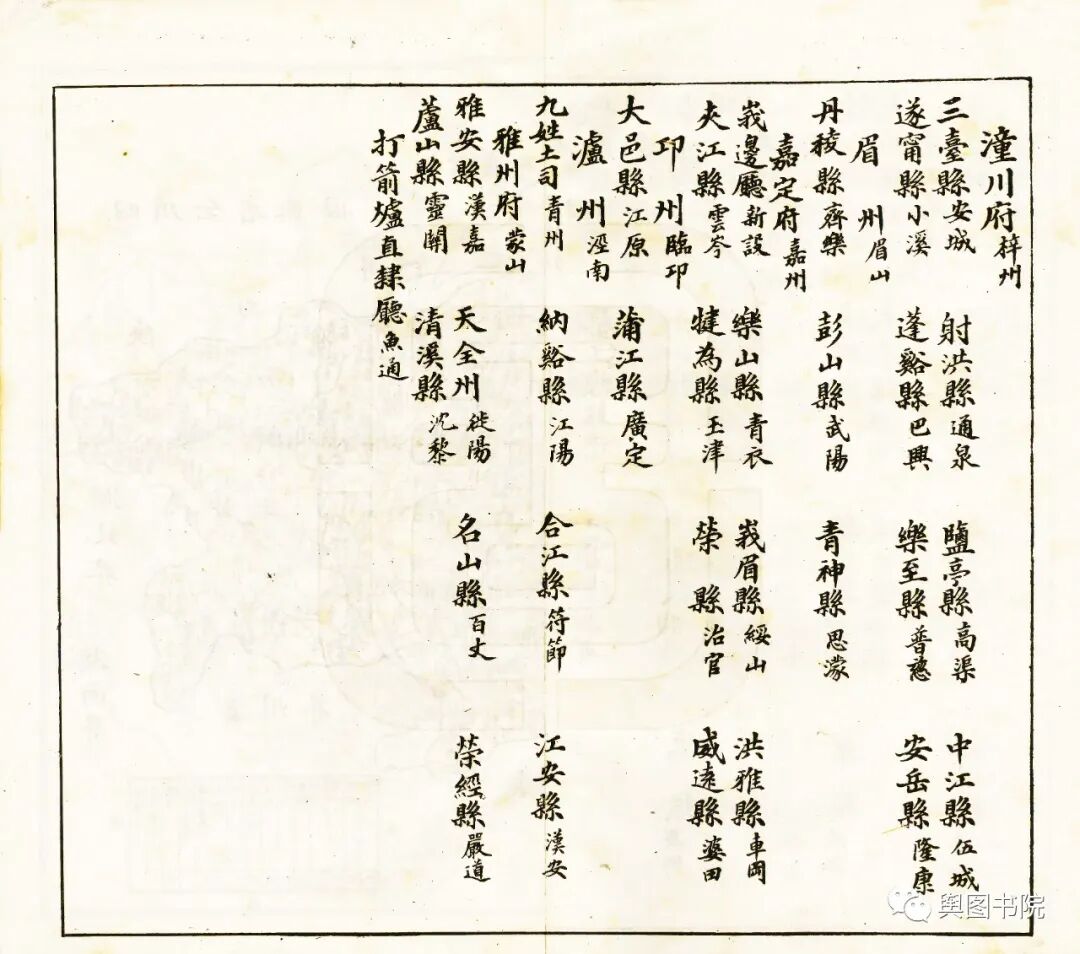 潼川府梓州
三臺縣安城 射洪縣通泉 鹽亭縣高渠 中江縣伍城
遂甯縣小溪 蓬谿縣巴興 樂至縣普慈 安岳縣隆康
眉州眉山
丹稜縣齊樂 彭山縣武陽 青神縣思濛
嘉定府嘉州
峩邊廳新設 樂山縣青衣 峩眉縣綏山 洪雅縣車岡
夾江縣雲岑 犍為縣玉津 榮縣治官 威遠縣婆田
邛州臨邛
大邑縣江原 蒲江縣廣定
瀘州瀘南
九姓土司青州 納谿縣江陽 合江縣符節 江安縣漢安
雅州府蒙山
雅安縣漢嘉 天全州徙陽 名山縣百丈 榮經縣嚴道
蘆山縣靈關 清溪縣沈黎
打箭爐直隸廳魚通
舆图书院